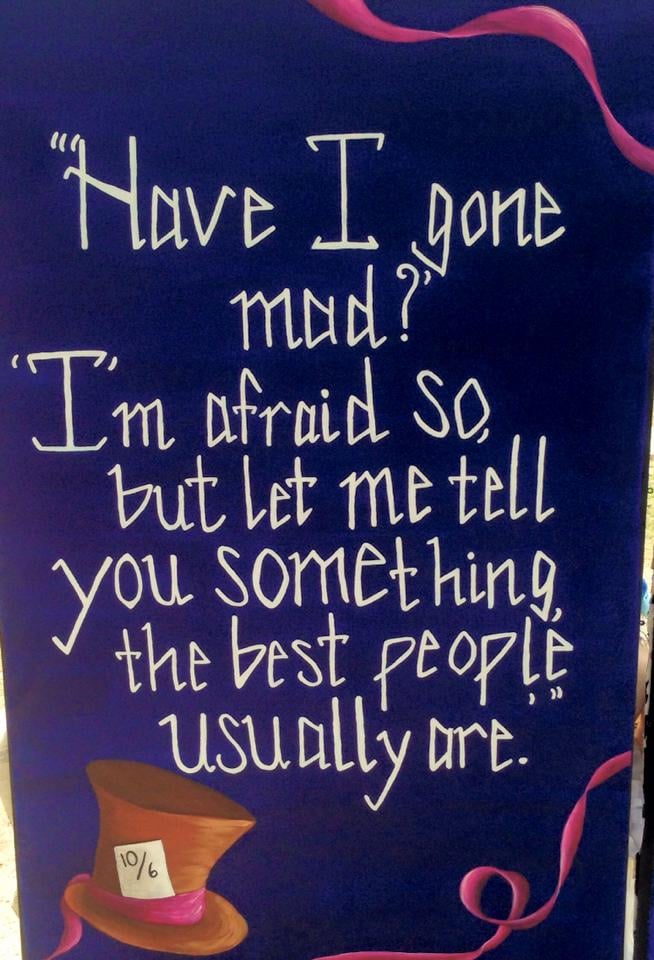 "'Have I gone
mad?'
'I'm afraid so,
but let me tell
you something,
the best people
usually are.'"
10/6